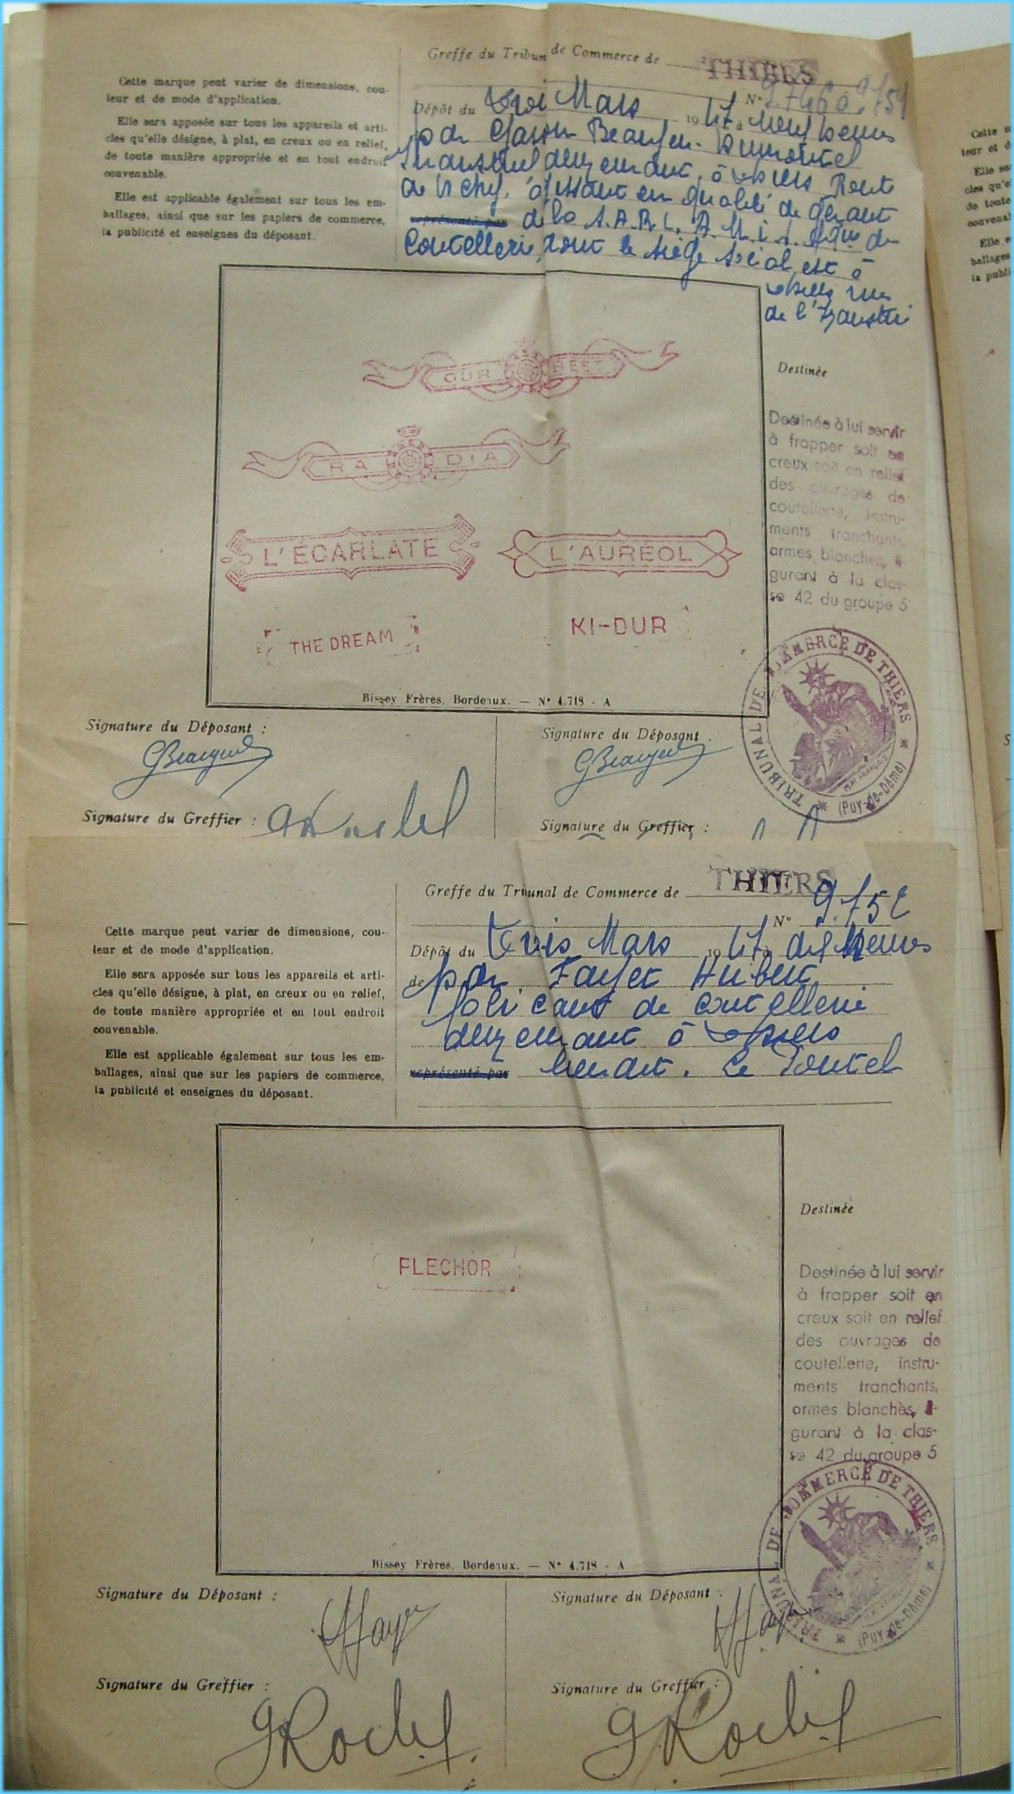 Greffe du Tribunal de Commerce de THIERS
N° 9151
Cette marque peut varier de dimensions, cou-
leur et de mode d'application.
Elle sera apposée sur tous les appareils et arti-
cles qu'elle désigne, à plat, en creux ou en relief,
de toute manière appropriée et en tout endroit
convenable.
Elle est applicable également sur tous les em-
ballages, ainsi que sur les papiers de commerce,
la publicité et enseignes du déposant.
Dépôt du trois Mars 1947 à neuf heures
par
Industriel demeurant à Thiers Route
de Vichy, agissant en qualité de gérant
représenté par de la S.A.R.L.
Coutellerie dont le siège social est à
Thiers rue
de l'Industrie
OUR BEST
RADIA
L'ÉCARLATE
L'AURÉOL
THE DREAM
KI-DUR
Bissey Frères, Bordeaux. — N° 4.718 - A
Destinée
Destinée à lui servir
à frapper soit en
creux soit en relief
des ouvrages de
coutellerie, instru-
ments tranchants,
armes blanches, fi-
gurant à la clas-
se 42 du groupe 5
TRIBUNAL DE COMMERCE DE THIERS
(Puy-de-Dôme)
Signature du Déposant :
Signature du Déposant :
Signature du Greffier :
Signature du Greffier :
Greffe du Tribunal de Commerce de THIERS
N° 9152
Cette marque peut varier de dimensions, cou-
leur et de mode d'application.
Elle sera apposée sur tous les appareils et arti-
cles qu'elle désigne, à plat, en creux ou en relief,
de toute manière appropriée et en tout endroit
convenable.
Elle est applicable également sur tous les em-
ballages, ainsi que sur les papiers de commerce,
la publicité et enseignes du déposant.
Dépôt du trois Mars 1947 à dix heures
de par Fayet Hubert
fabricant de coutellerie
demeurant à Thiers
représenté par
FLECHOR
Bissey Frères, Bordeaux. — N° 4.718 - A
Destinée
Destinée à lui servir
à frapper soit en
creux soit en relief
des ouvrages de
coutellerie, instru-
ments tranchants,
armes blanches, fi-
gurant à la clas-
se 42 du groupe 5
TRIBUNAL DE COMMERCE DE THIERS
(Puy-de-Dôme)
Signature du Déposant :
Signature du Déposant :
Signature du Greffier :
Signature du Greffier :